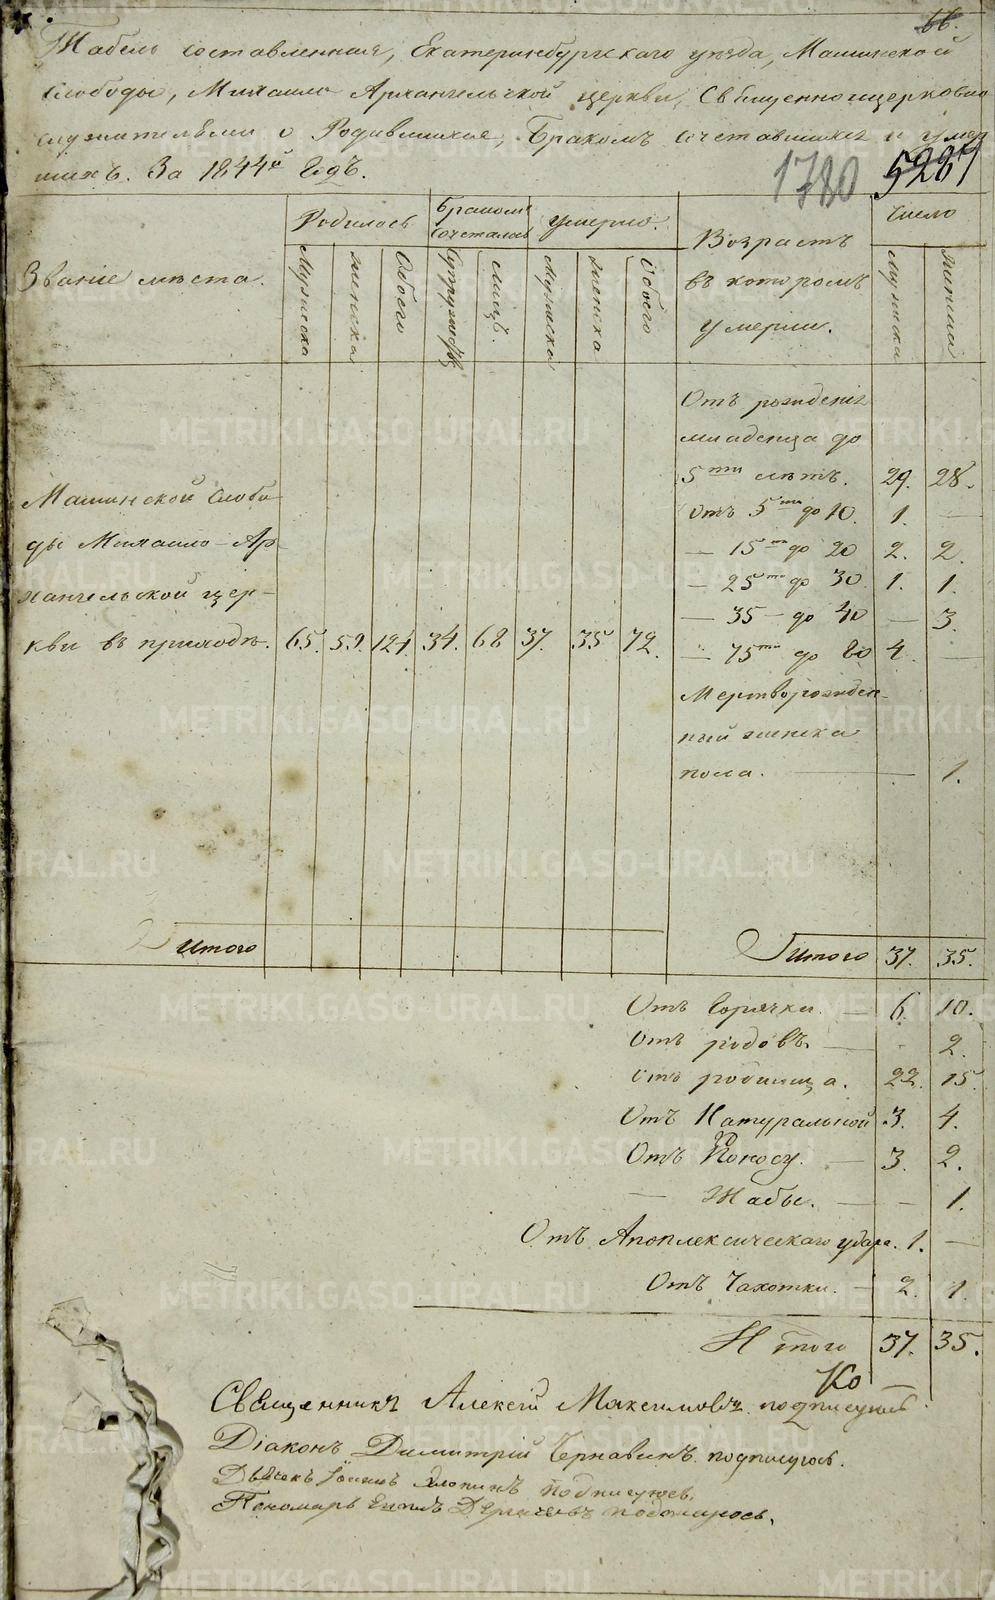 66.
Табель составленная, Екатеринбургскаго уезда, Маминской
слободы, Михаило Архангельской церкви, Священноцерковно
служительми о Родившихся, Бракомъ сочетавшихся и умер
шихъ. За 1844й Годъ.
1780 5287
Званіе места. Родилось Бракомъ сочеталось умерло. Возрастъ въ которомъ умерли. Число
Мужска женска Обоего Супружествъ Лицъ. Мужска женска Обоего Мужска женска
Отъ рожденія
младенца до
5ти летъ. 29. 28.
Отъ 5ти до 10. 1. —
— 15ти до 20 2. 2.
— 25ти до 30. 1. 1.
— 35 — до 40 — 3.
— 75ти до 80 4. —
Мертворожден-
ный женска
пола. — 1.
Маминской Слобо-
ды Михаило-Ар-
хангельской цер-
кви въ приходе. 65. 59. 124. 34. 68 37. 35 72.
Итого
Итого 37. 35.
Отъ Горячки. — 6. 10.
Отъ родовъ. — 2.
Отъ родимца. 22. 15.
Отъ Натуральной 3. 4.
Отъ Поносу. — 3. 2.
— Жабы. — — 1.
Отъ Апоплексическаго удара. 1. —
Отъ Чахотки. — 2. 1.
Итого 37. 35.
Ко
Священникъ Алексій Максимовъ подписуюсь
Діаконъ Димитрій Чернавинъ подписуюсь.
Дьячекъ подписуюсь.
Пономарь подписуюсь.
METRIKI.GASO-URAL.RU